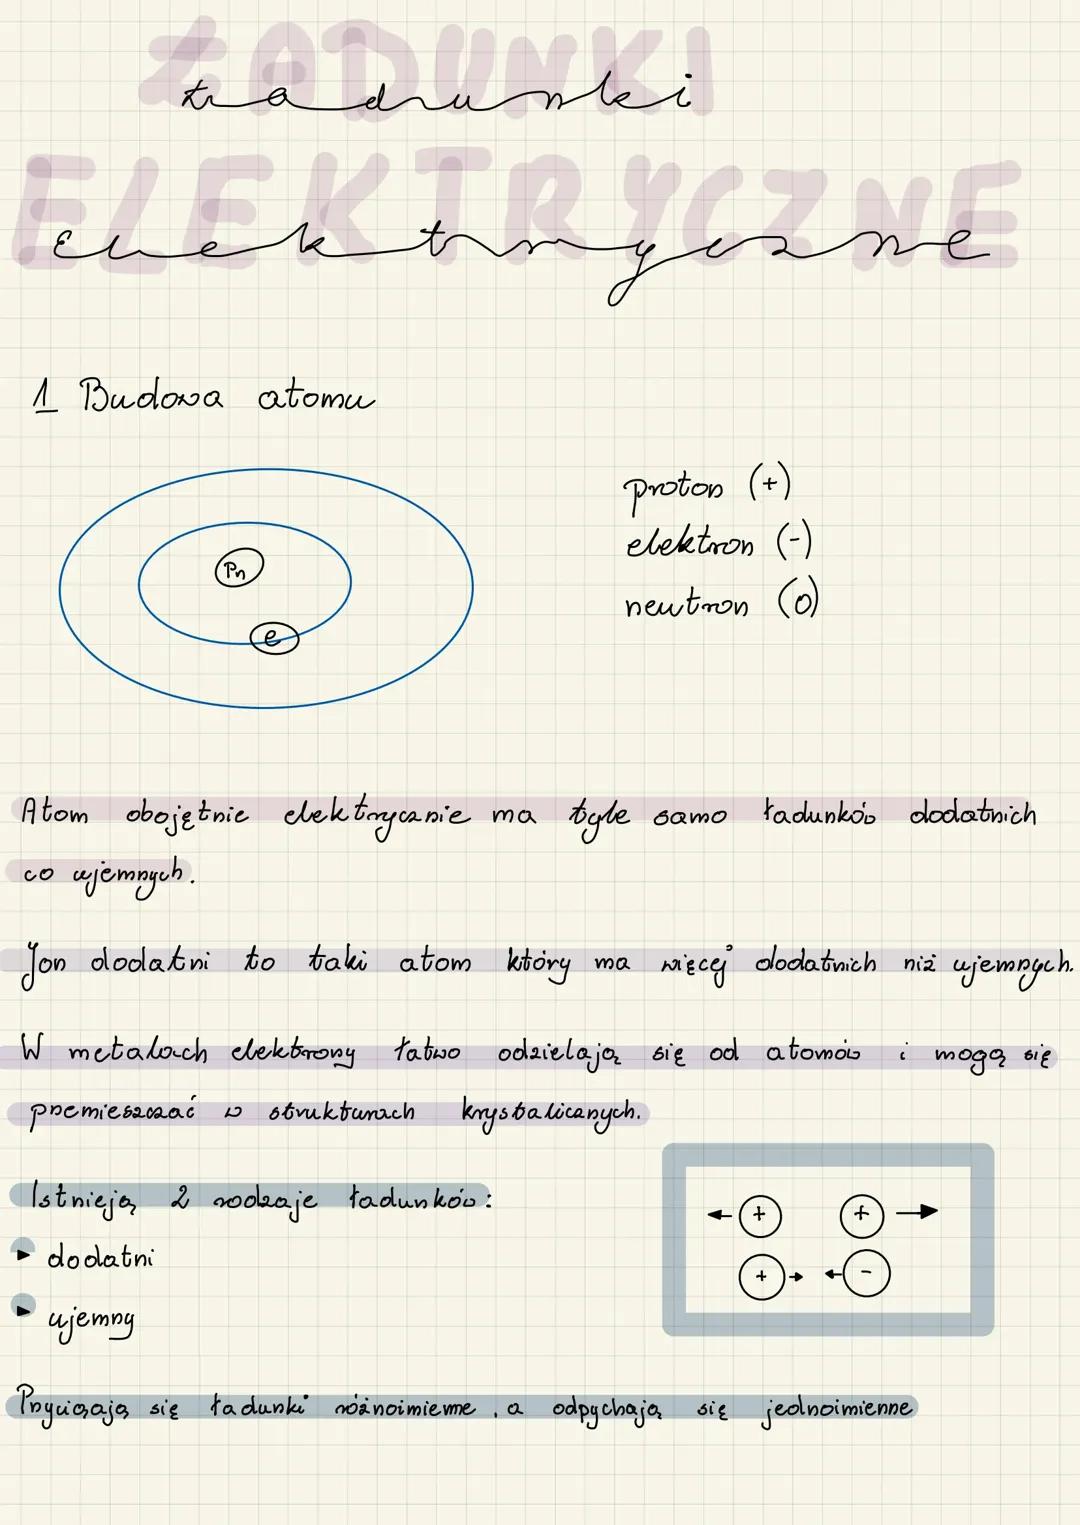 ŁADUNKI
Ładunki
ELEKTRYCZNE
Elektryczne
1 Budowa atomu
proton (+)
elektron (-)
neutron (0)
Pn
e
Atom obojętnie elektrycznie ma tyle samo ładunków dodatnich
co ujemnych.
Jon dodatni to taki atom który ma więcej dodatnich niż ujemnych.
W metalach elektrony łatwo odzielają się od atomów i mogą się
przemieszczać w strukturach krystalicznych.
Istnieją 2 rodzaje ładunków:
+ +
▸ dodatni
+ -
▸ ujemny
Przyciągają się ładunki różnoimienne, a odpychają się jednoimienne